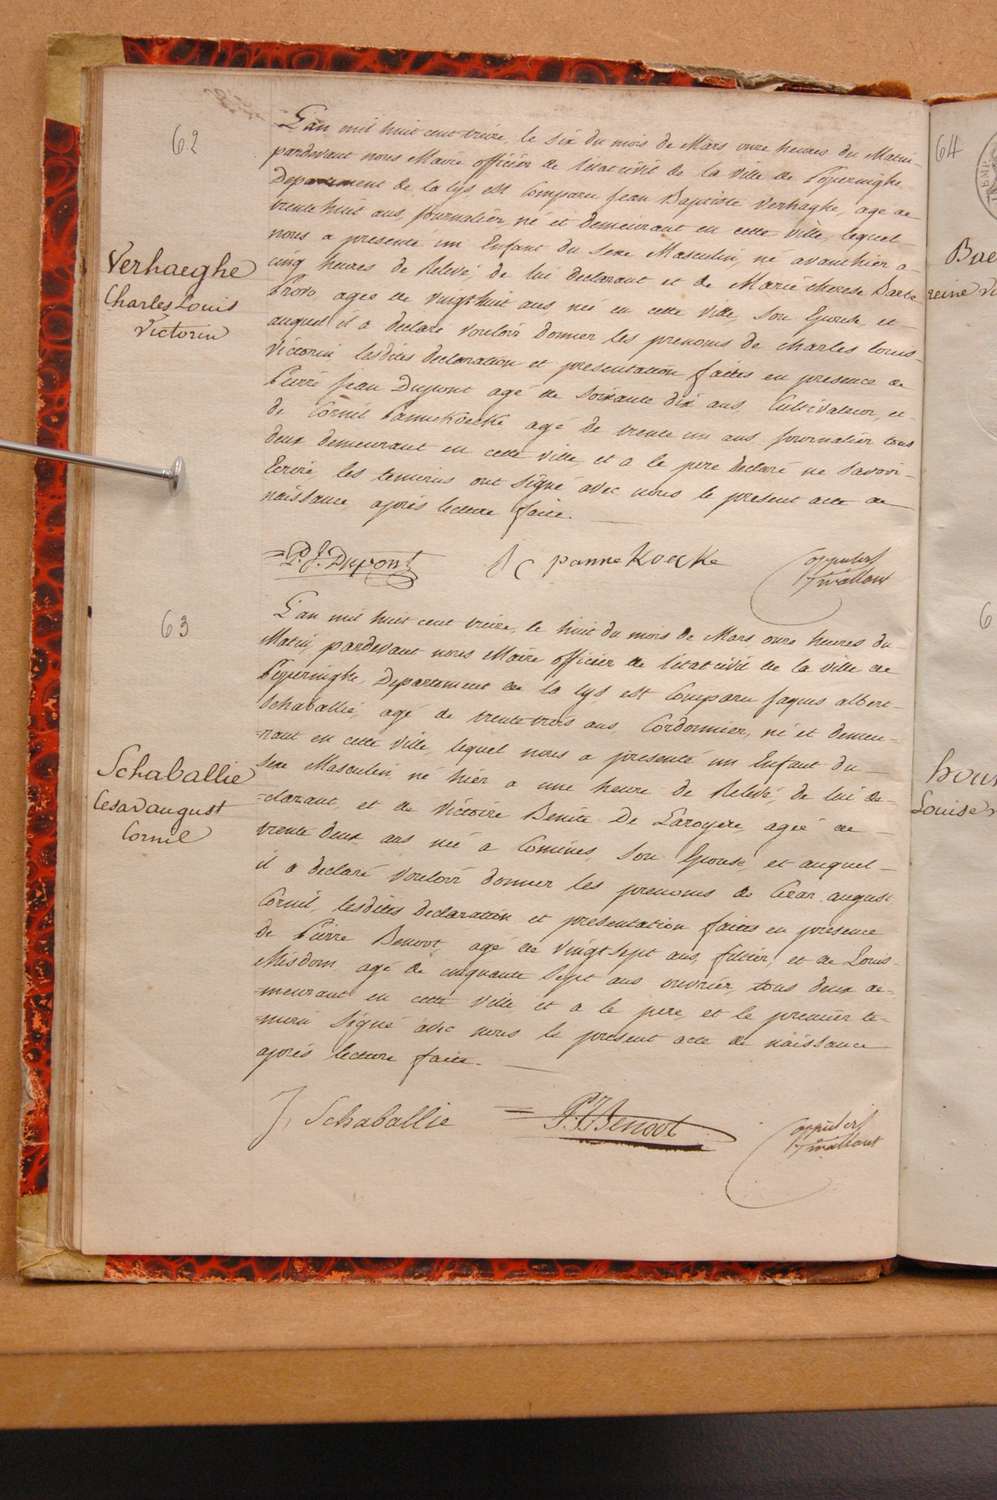 62
Verhaeghe
Charles Louis
Victorin
L'an mil huit cent treize, le six du mois de Mars onze heures du Matin
pardevant nous Maire officier de l'état civil de la ville de Poperinghe
Departement de la Lys est Comparu Jean Baptiste Verhaghe, agé de
trente huit ans, journalier né et demeurant en cette ville, lequel
nous a presenté un Enfant du sexe Masculin, né avanthier a
cinq heures de Relevé, de lui declarant et de Marie therese Barbe
Provo, agée de vingthuit ans née en cette ville, son Epouse, et
auquel il a declaré vouloir donner les prenoms de Charles Louis
Victorin lesdites declaration et presentation faites en presence de
Pierre Jean Dupont agé de soixante dix ans, Cultivateur, et
de Cornil Pannekoecke agé de trente un ans, journalier tous
deux demeurant en cette ville, et a le pere declaré ne savoir
Ecrire les temoins ont signé avec nous le present acte de
naissance après lecture faite.
P. J. Dupont
C pannekoecke
63
Schaballie
Cesar august
Cornil
L'an mil huit cent treize, le huit du mois de Mars onze heures du
Matin, pardevant nous Maire officier de l'état civil de la ville de
Poperinghe, Departement de la Lys est Comparu Jaques albert
Schaballie, agé de trentetrois ans Cordonnier, né et demeu-
-rant en cette ville, lequel nous a presenté un Enfant du
sexe Masculin né hier a une heure de Relevé, de lui de-
-clarant, et de Victoire Benite De Laroyere, agée de
trente deux ans née a Comines, son Epouse, et auquel
il a declaré vouloir donner les prenoms de Cesar august
Cornil, lesdites declaration et presentation faites en présence
de Pierre Benoot, agé de vingt sept ans, filtier, et de Louis
Misdom, agé de cinquante sept ans ouvrier, tous deux de-
-meurant en cette ville, et a le pere, et le premier te-
-moin signé avec nous le present acte de naissance
après lecture faite.
J, Schaballie
P. J. Benoot
64
Bae
reine
6
hous
Louise